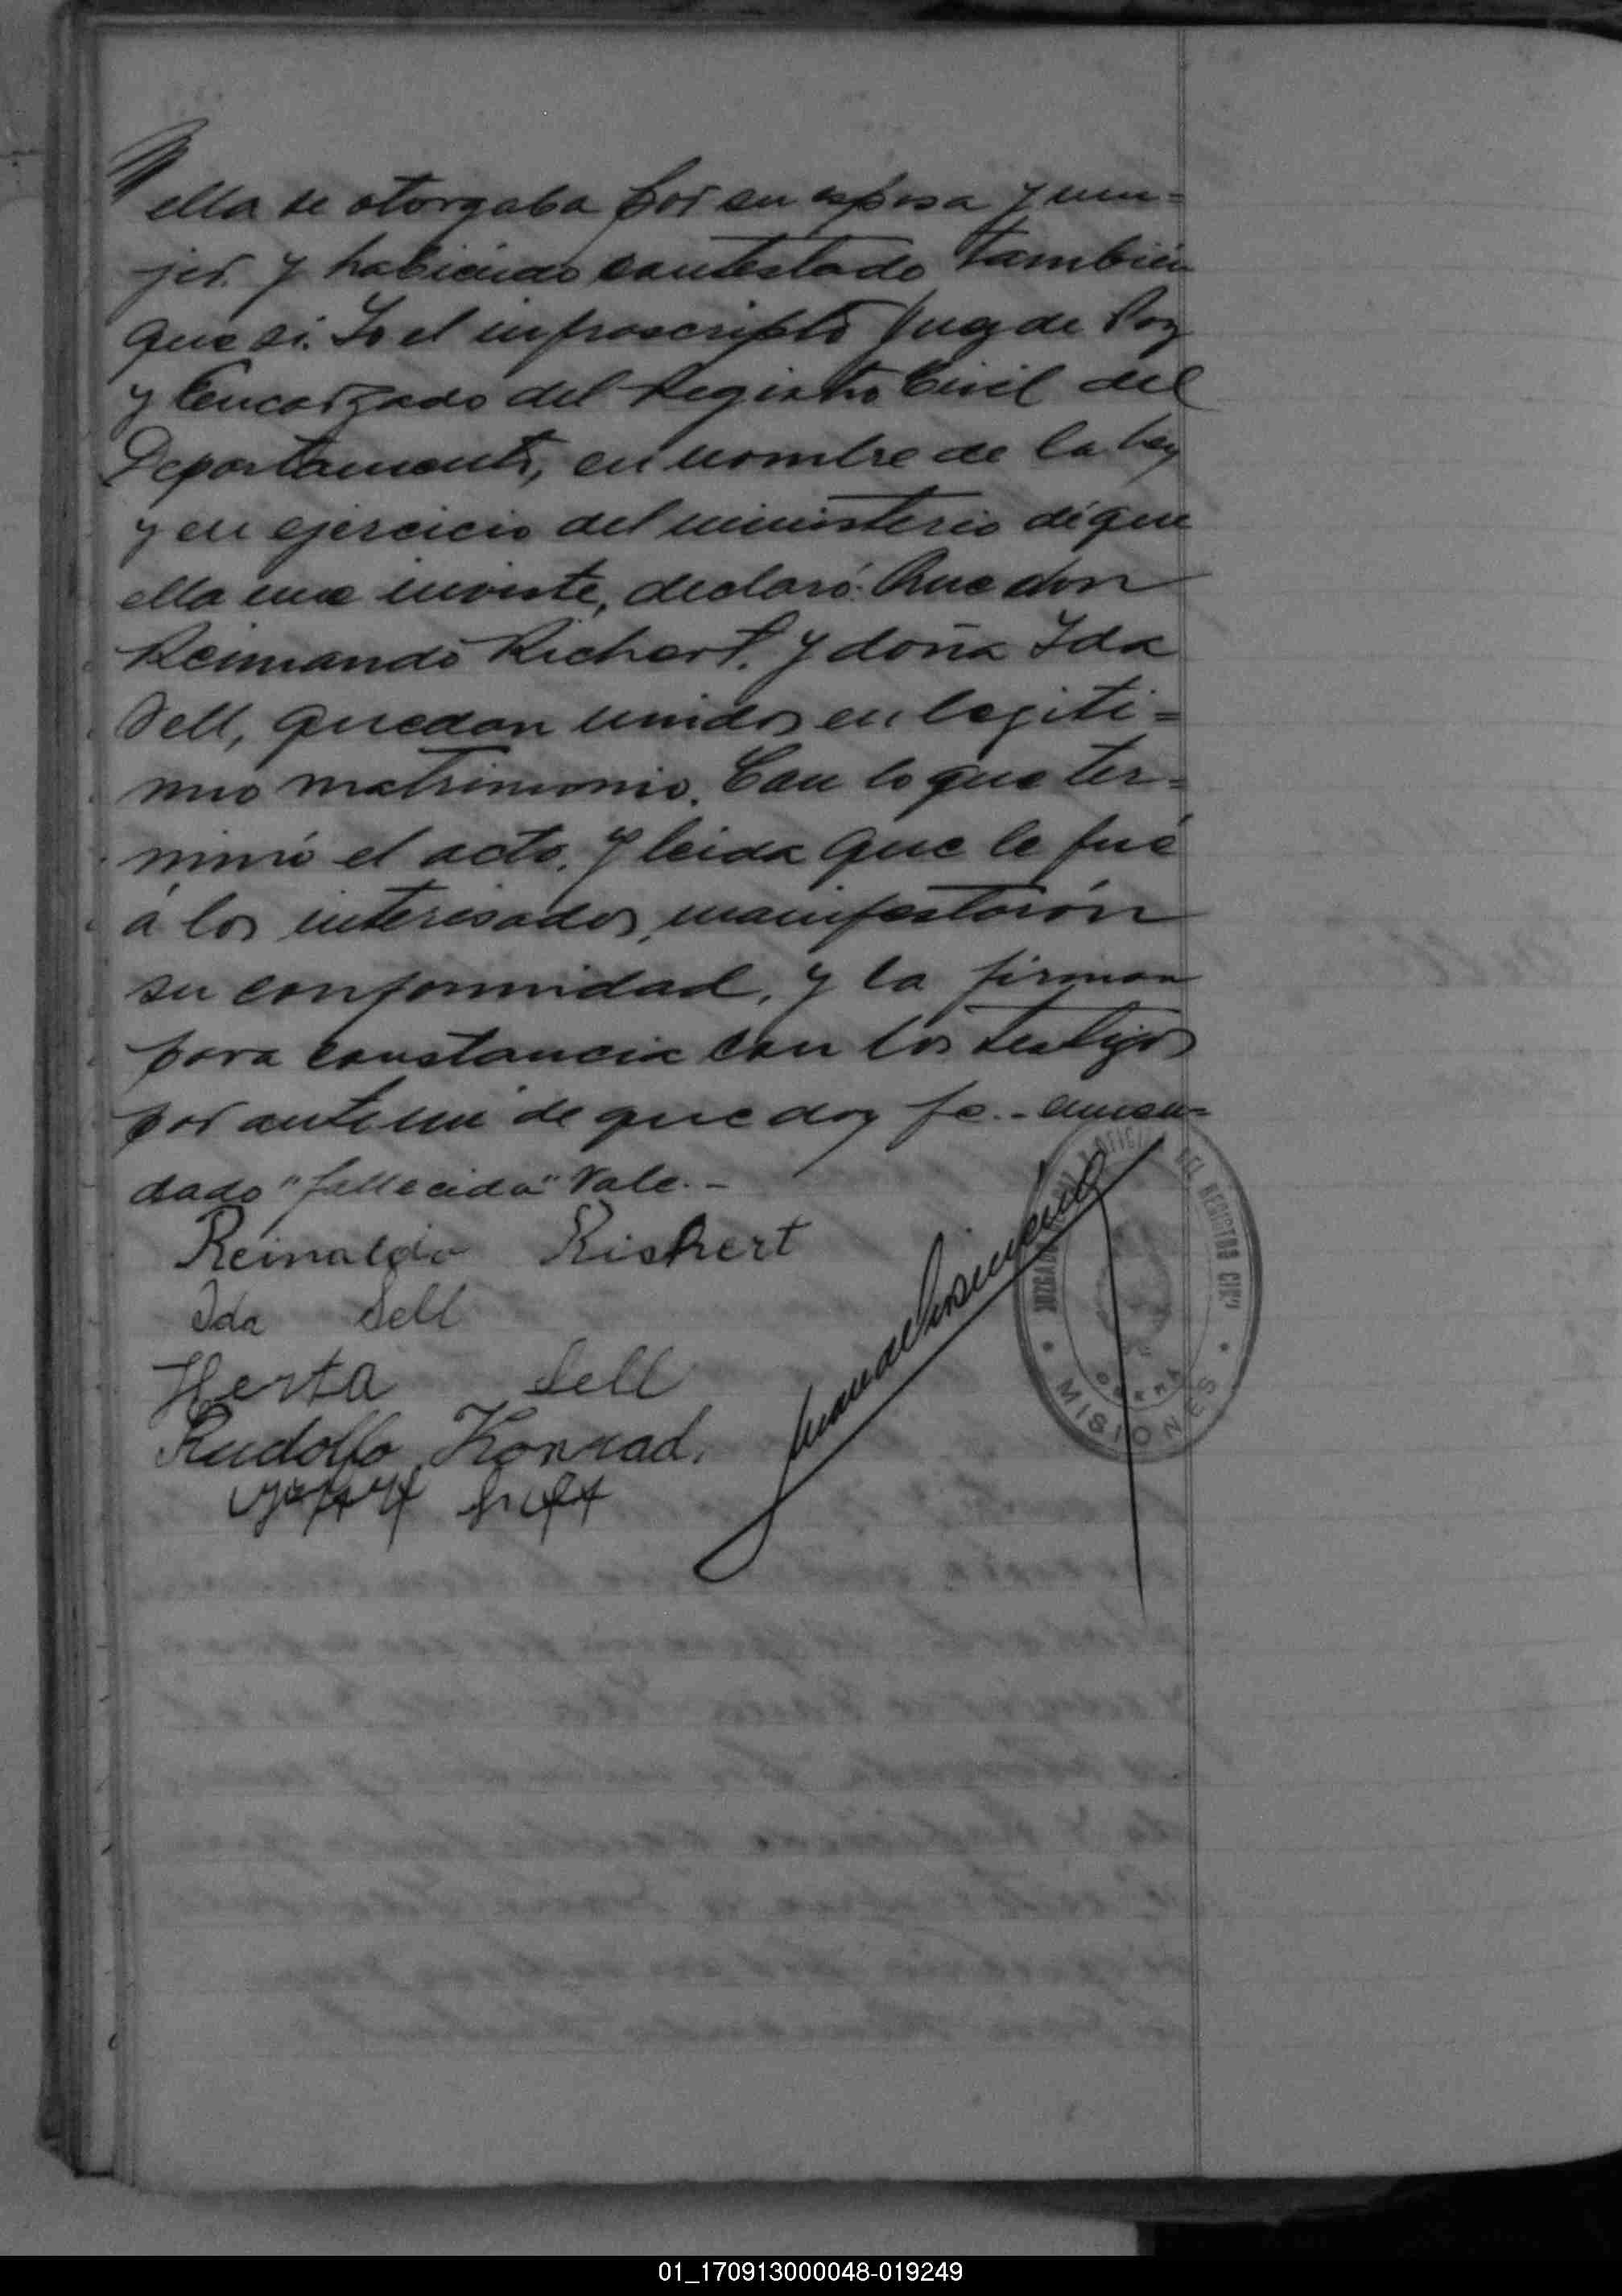 ella se otorgaba por su esposa y mu=
jer. Y habiendo contestado también
que si. Yo el infrascripto Juez de Paz
y Encargado del Registro Civil del
Departamento, en nombre de la Ley
y en ejercicio del ministerio de que
ella me inviste, declaró: Que don
Reimando Richert. Y doña Ida
Sell, quedan unidos en legiti=
mo matrimonio. Con lo que ter=
minó el acto. Y leida que le fué
á los interesados, manifestarón
su conformidad, y la firman
para constancia con los testigos
por ante mi de que doy fe.- enmen=
dado "fallecida" Vale.-
Reinaldo Rischert
Ida Sell
Herta Sell
Rudolfo Konrad.
JUZGADO DEL REGISTRO CIVIL
OBERA
MISIONES
01_170913000048-019249